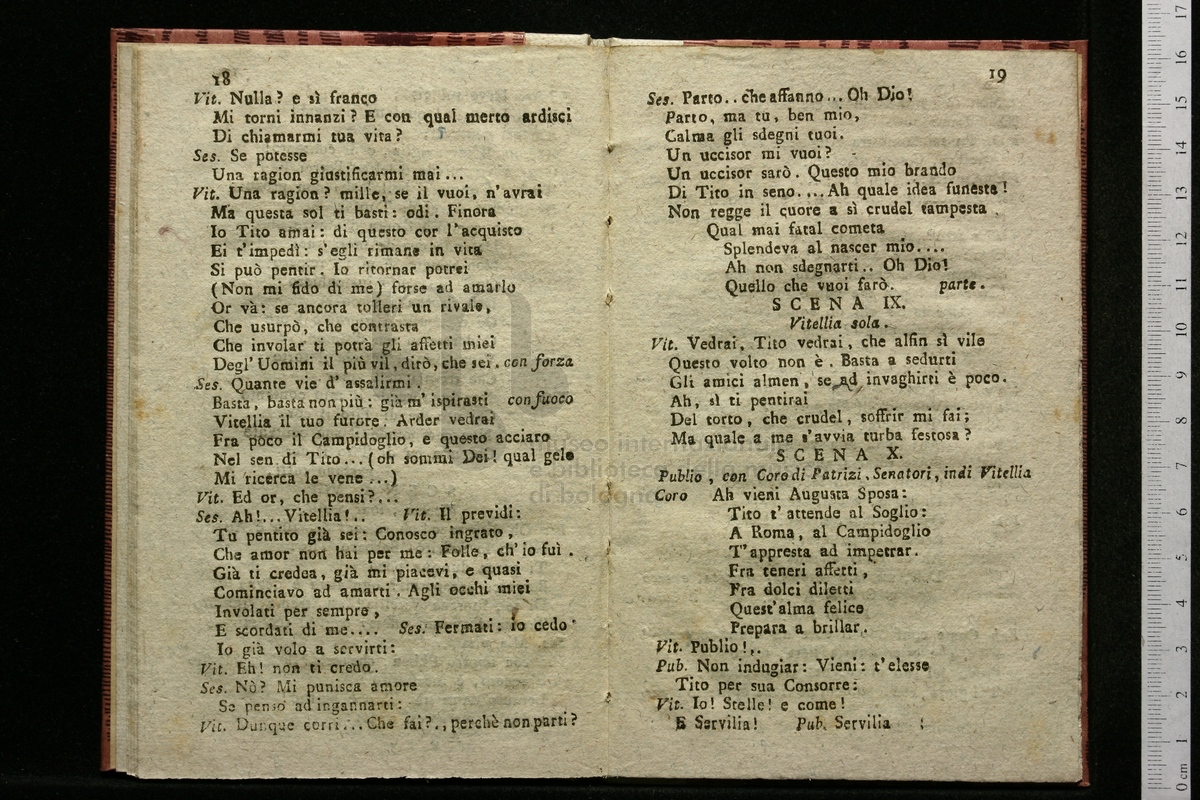 18
Vit. Nulla? e sì franco
Mi torni innanzi? E con qual merto ardisci
Di chiamarmi tua vita?
Ses. Se potesse
Una ragion giustificarmi mai...
Vit. Una ragion? mille, se il vuoi, n'avrai
Ma questa sol ti basti: odi. Finora
Io Tito amai: di questo cor l'acquisto
Ei t'impedì: s'egli rimane in vita
Si può pentir. Io ritornar potrei
(Non mi fido di me) forse ad amarlo
Or và: se ancora tolleri un rivale,
Che usurpò, che contrasta
Che involar ti potrà gli affetti miei
Degl' Uomini il più vil, dirò, che sei. con forza
Ses. Quante vie d' assalirmi.
Basta, basta non più: già m' ispirasti con fuoco
Vitellia il tuo furore. Arder vedrai
Fra poco il Campidoglio, e questo acciaro
Nel sen di Tito... (oh sommi Dei! qual gelo
Mi ricerca le vene ...)
Vit. Ed or, che pensi?...
Ses. Ah!... Vitellia!.. Vit. Il previdi:
Tu pentito già sei: Conosco ingrato,
Che amor non hai per me: Folle, ch' io fui.
Già ti credea, già mi piacevi, e quasi
Cominciavo ad amarti. Agli occhi miei
Involati per sempre,
E scordati di me.... Ses. Fermati: io cedo
Io già volo a servirti:
Vit. Eh! non ti credo.
Ses. Nò? Mi punisca amore
Se penso ad ingannarti:
Vit. Dunque corri... Che fai?., perchè non parti?
19
Ses. Parto.. che affanno... Oh Dio!
Parto, ma tu, ben mio,
Calma gli sdegni tuoi.
Un uccisor mi vuoi?
Un uccisor sarò. Questo mio brando
Di Tito in seno.... Ah quale idea funesta!
Non regge il cuore a sì crudel tampesta.
Qual mai fatal cometa
Splendeva al nascer mio....
Ah non sdegnarti.. Oh Dio!
Quello che vuoi farò. parte.
SCENA IX.
Vitellia sola.
Vit. Vedrai, Tito vedrai, che alfin sì vile
Questo volto non è. Basta a sedurti
Gli amici almen, se ad invaghirti è poco.
Ah, sì ti pentirai
Del torto, che crudel, soffrir mi fai;
Ma quale a me s'avvia turba festosa?
SCENA X.
Publio, con Coro di Patrizi, Senatori, indi Vitellia
Coro Ah vieni Augusta Sposa:
Tito t' attende al Soglio:
A Roma, al Campidoglio
T' appresta ad impetrar.
Fra teneri affetti,
Fra dolci diletti
Quest'alma felice
Prepara a brillar.
Vit. Publio!,.
Pub. Non indugiar: Vieni: t' elesse
Tito per sua Consorre:
Vit. Io! Stelle! e come!
E Servilia! Pub. Servilia !
museo internazionale
e biblioteca della musica
di bologna
0 cm 1 2 3 4 5 6 7 8 9 10 11 12 13 14 15 16 17